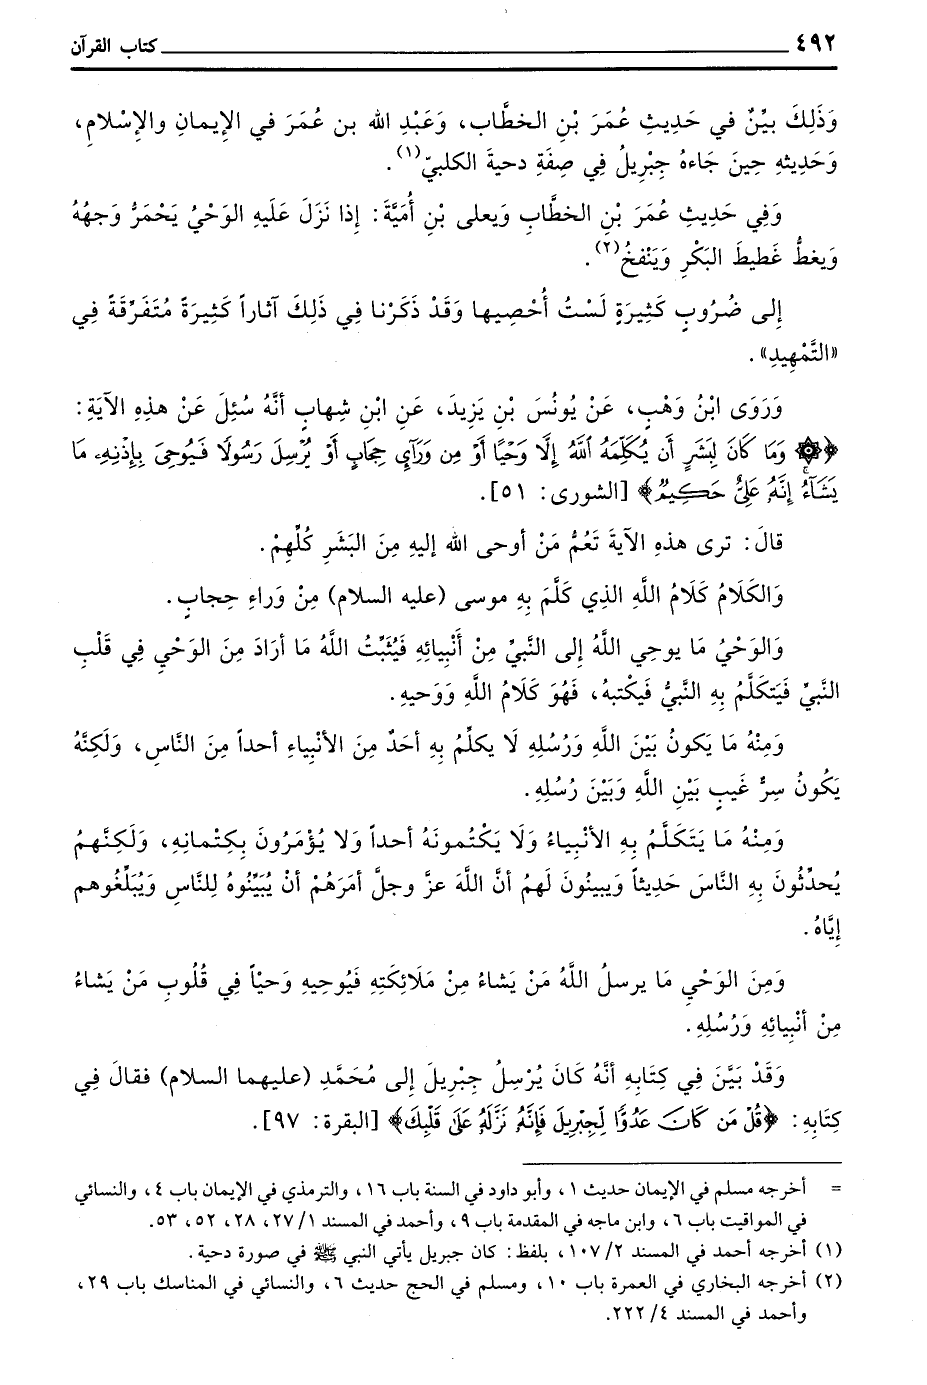 ٤٩٢ كتاب القرآن
وَذَلِكَ بيِّنٌ في حَدِيثِ عُمَرَ بْنِ الخطَّاب، وَعَبْدِ الله بن عُمَرَ في الإيمانِ والإسْلامِ،
وَحَدِيثِهِ حِينَ جَاءهُ جِبْرِيلُ فِي صِفَةِ دحيةَ الكلبيّ(١).
وَفِي حَدِيثِ عُمَرَ بْنِ الخطَّابِ وَيعلى بْنِ أُمَيَّةَ: إذا نَزَلَ عَلَيهِ الوَحْيُ يَحْمَرُّ وَجهُهُ
وَيغطُّ غَطيطَ البَكْرِ وَيَنْفخُ(٢).
إلى ضُرُوبٍ كَثِيرَةٍ لَسْتُ أُحْصِيها وَقَدْ ذَكَرْنا فِي ذَلِكَ آثاراً كَثِيرَةً مُتَفَرِّقَةً فِي
«التَّمْهِيدِ».
وَرَوَى ابْنُ وَهْبٍ، عَنْ يُونُسَ بْنِ يَزِيدَ، عَنِ ابْنِ شِهابٍ أنَّهُ سُئِلَ عَنْ هذِهِ الآيَةِ:
﴿۞ وَمَا كَانَ لِبَشَرٍ أَن يُكَلِّمَهُ ٱللَّهُ إِلَّا وَحْيًا أَوْ مِن وَرَآئِ حِجَابٍ أَوْ يُرْسِلَ رَسُولًا فَيُوحِيَ بِإِذْنِهِۦ مَا
يَشَآءُۚ إِنَّهُۥ عَلِيٌّ حَكِيمٌ﴾ [الشورى: ٥١].
قالَ: ترى هذهِ الآيةَ تَعُمُّ مَنْ أوحى الله إليهِ مِنَ البَشَرِ كُلِّهِمْ.
وَالكَلَامُ كَلَامُ اللَّهِ الذِي كَلَّمَ بِهِ موسى (عليه السلام) مِنْ وَراءِ حِجابٍ.
وَالوَحْيُ مَا يوحِي اللَّهُ إلى النَّبيِّ مِنْ أَنْبِيائِهِ فَيُثَبِّتُ اللَّهُ مَا أرَادَ مِنَ الوَحْيِ فِي قَلْبِ
النَّبيِّ فَيَتكَلَّمُ بِهِ النَّبيُّ فَيكْتبهُ، فَهُوَ كَلَامُ اللَّهِ وَوَحيهِ.
وَمِنْهُ مَا يَكونُ بَيْنَ اللَّهِ وَرُسُلِهِ لَا يكلِّمُ بِهِ أحَدٌ مِنَ الأنْبِياءِ أحداً مِنَ النَّاسِ، وَلَكِنَّهُ
يَكُونُ سِرَّ غَيبٍ بَيْنِ اللَّهِ وَبَيْنَ رُسُلِهِ.
وَمِنْهُ مَا يَتَكَلَّمُ بِهِ الأنْبِياءُ وَلَا يَكْتُمونَهُ أحداً وَلا يُؤْمَرُونَ بِكِتْمانِهِ، وَلَكِنَّهُم
يُحدِّثُونَ بِهِ النَّاسَ حَدِيثاً وَيبينُونَ لَهمُ أنَّ اللَّهَ عزَّ وجلَّ أمَرَهُمْ أنْ يُبَيِّنُوهُ لِلنَّاسِ وَيُبَلِّغُوهم
إيَّاهُ.
وَمِنَ الوَحْي مَا يرسلُ اللَّهُ مَنْ يَشاءُ مِنْ مَلَائِكَتِهِ فَيُوحِيهِ وَحيْاً فِي قُلُوبِ مَنْ يَشاءُ
مِنْ أنْبِيائِهِ وَرُسُلِهِ.
وَقَدْ بَيَّنَ فِي كِتابِهِ أنَّهُ كَانَ يُرْسِلُ جِبْرِيلَ إلى مُحَمَّدٍ (عليهما السلام) فقالَ فِي
كِتَابِهِ: ﴿قُلْ مَن كَانَ عَدُوًّا لِّجِبْرِيلَ فَإِنَّهُۥ نَزَّلَهُۥ عَلَىٰ قَلْبِكَ﴾ [البقرة: ٩٧].
= أخرجه مسلم في الإيمان حديث ١، وأبو داود في السنة باب ١٦، والترمذي في الإيمان باب ٤، والنسائي
في المواقيت باب ٦، وابن ماجه في المقدمة باب ٩، وأحمد في المسند ٢٧/١، ٢٨، ٥٢، ٥٣.
(١) أخرجه أحمد في المسند ١٠٧/٢، بلفظ: كان جبريل يأتي النبي ﷺ في صورة دحية.
(٢) أخرجه البخاري في العمرة باب ١٠، ومسلم في الحج حديث ٦، والنسائي في المناسك باب ٢٩،
وأحمد في المسند ٢٢٢/٤.